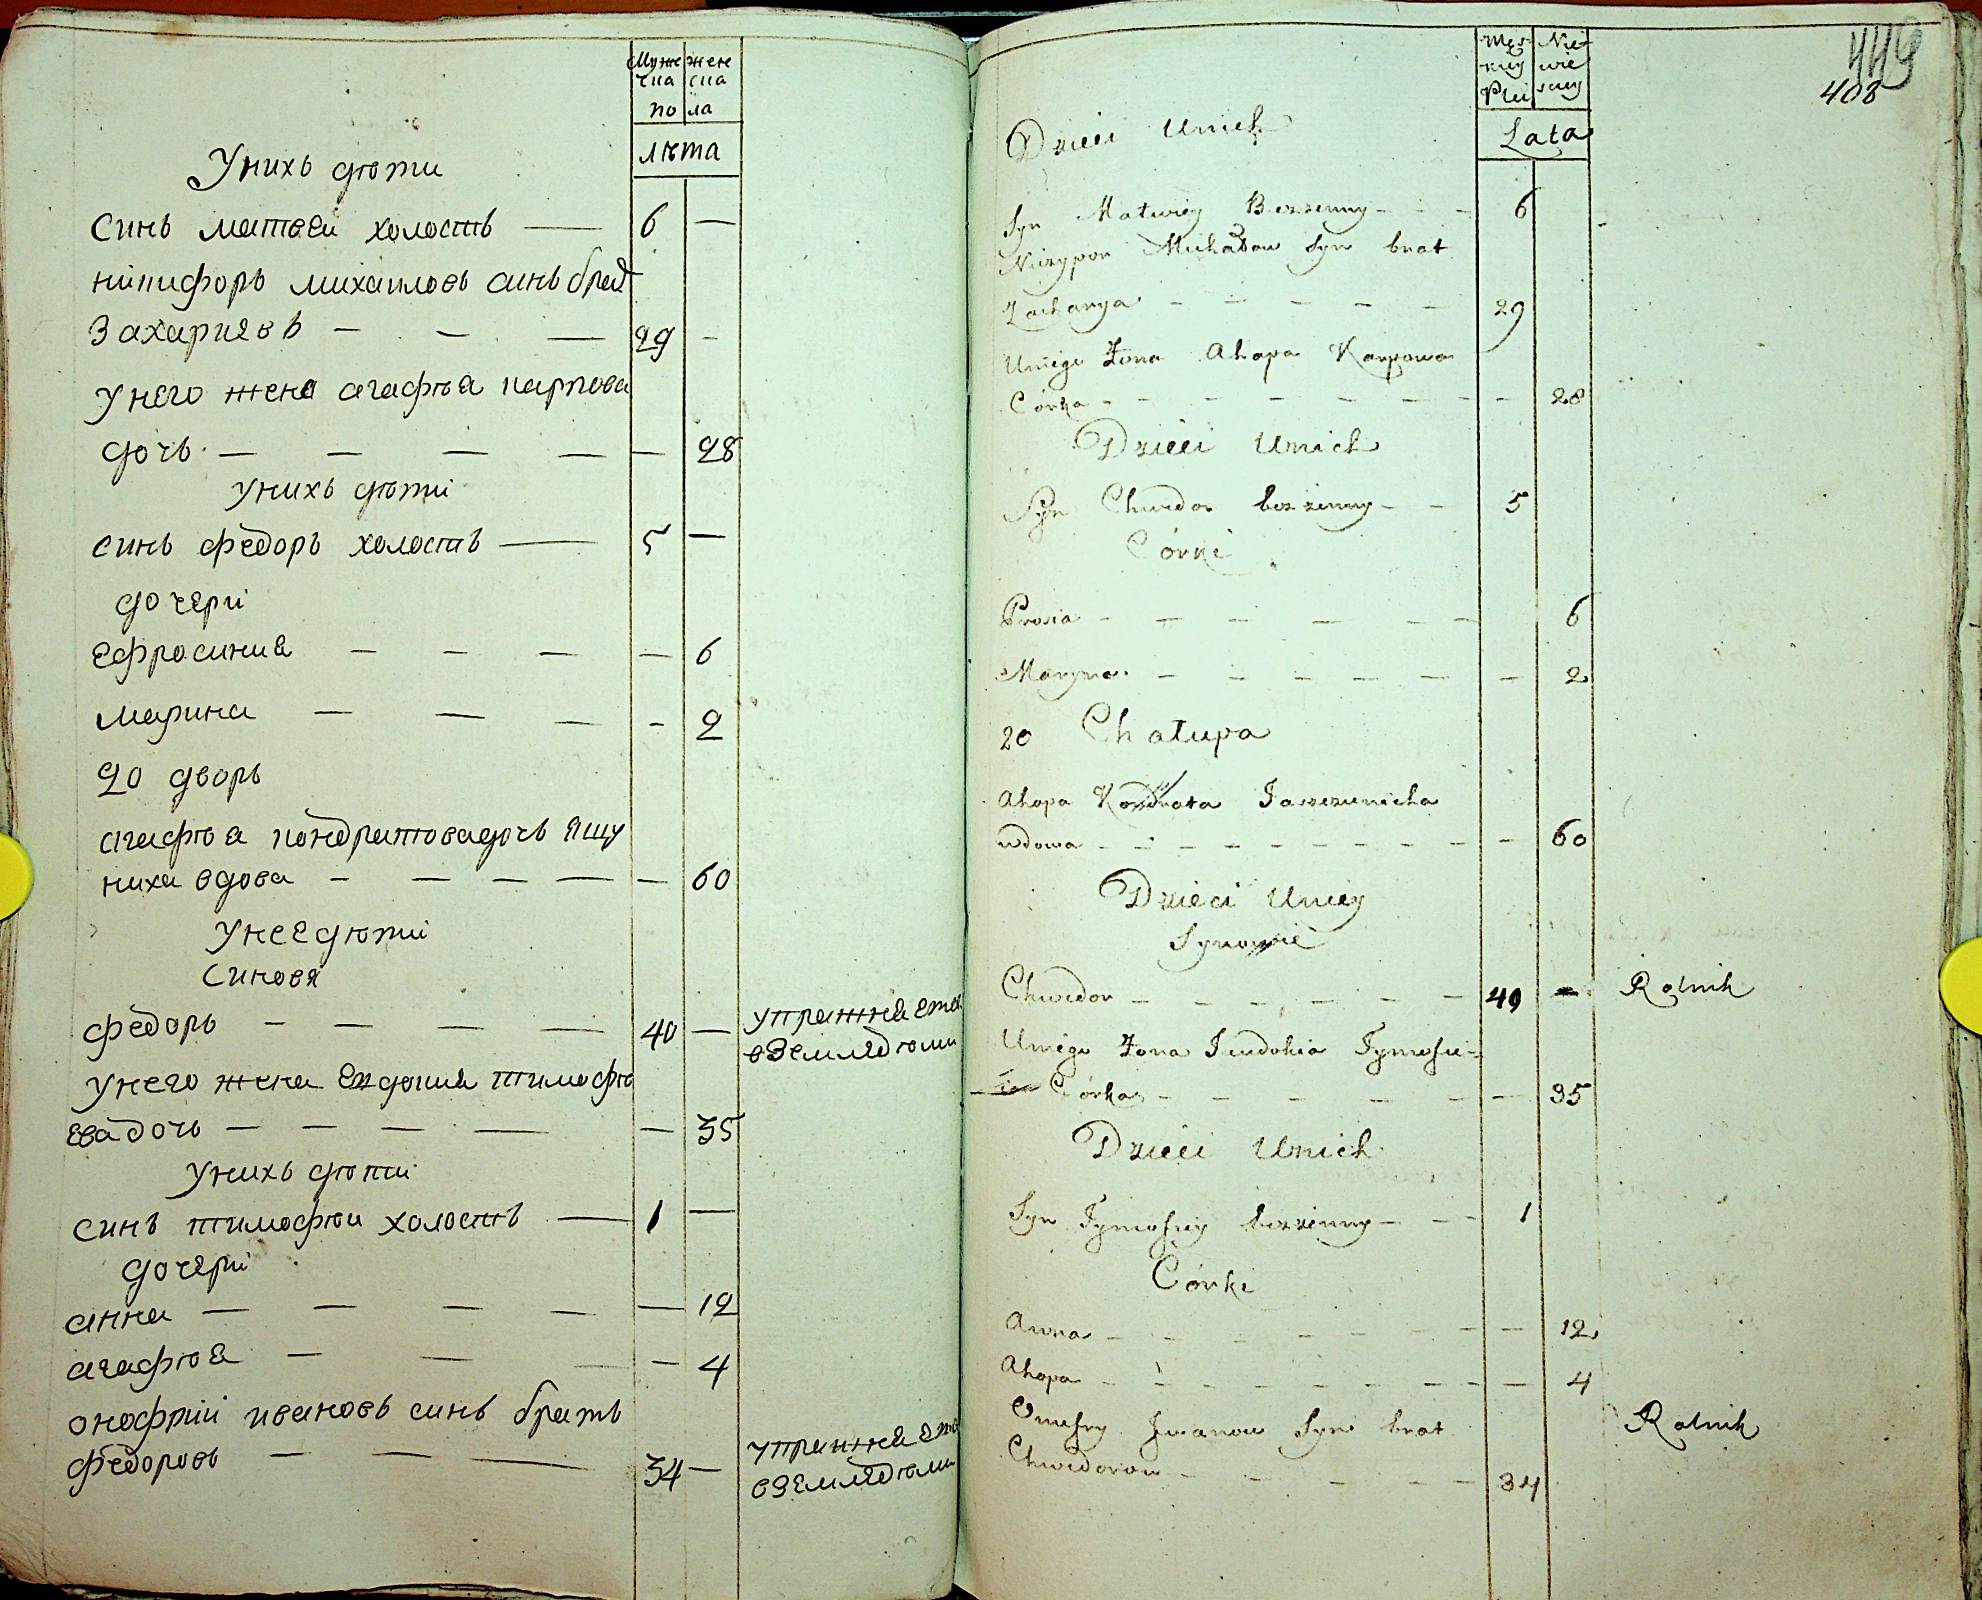 Муже жен
ска ска
по ла
лѣта
Унихъ дѣти
синъ матвей холостъ — 6 —
никифоръ михаиловъ синъ брат
Захариевъ — — — 29 -
унего жена агафѣя карпова
дочь — — — — — 28
унихъ дѣти
синъ федоръ холостъ — 5 —
дочери
ефросиния — — — — 6
марина — — — - 2
20 дворъ
агафѣя кондратовадочь ящу
ниха вдова — — — — — 60
унеедѣти
синовя
федоръ — — — — 40 — упражняетс
вземледѣли
унего жена евдокия тимофѣ
евадочь — — — — — 35
унихъ дѣти
синъ тимофѣи холостъ — 1 —
дочери
анна — — — — — 12
агафѣя — — — — 4
онофрий ивановъ синъ братъ
федоровъ — — — 34 — упражняетс
вземледѣли
449
408
Męz- Nie-
kiey wie
Płci sciey
Lata
Dzieci Unich
Syn Matwiey Bezzenny - - - 6
Niczypor Michałow Syn brat
Zacharya - - - - - 29
Uniego Żona Ahapa Karpowa
Córka - - - - - - - - 28
Dzieci Unich
Syn Chwedor bezzenny - - 5
Córki
Prosia - - - - - - 6
Maryna - - - - - - 2
20 Chałupa
Ahapa Kondrata Jaszczunicha
wdowa - - - - - - - - - 60
Dzieci Uniey
Synowie
Chwedor - - - - - - 40 - Rolnik
Uniego Żona Jewdokia Tymofie-
Córka - - - - - - 35
Dzieci Unich
Syn Tymofiey bezzenny - - - 1
Córki
Anna - - - - - - - 12
Ahapa - - - - - - - - - 4
Onufry Jwanow Syn brat Rolnik
Chwedorow - - - - - 34